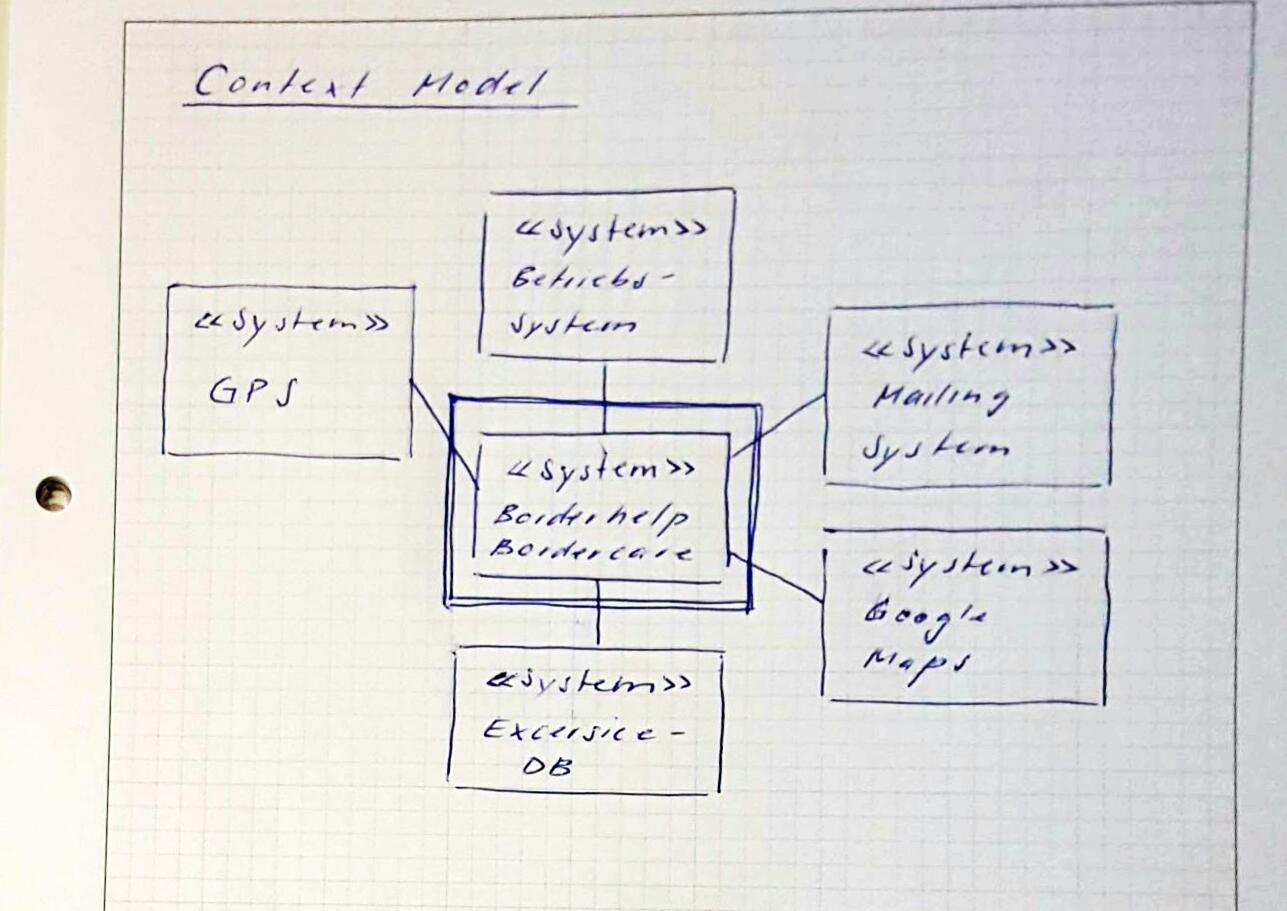 Context Model
<<system>>
Betriebs-
system
<<system>>
GPS
<<system>>
Mailing
System
<<system>>
Borderhelp
Bordercare
<<system>>
Google
Maps
<<system>>
Excersice-
DB